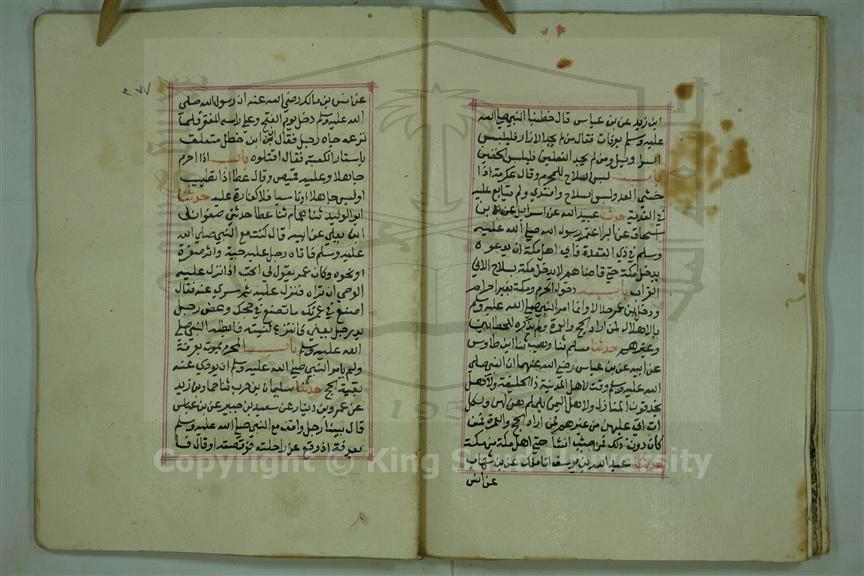 ابن زيد عن بن عباس قال خطبنا النبي صلى الله
عليه وسلم بعرفات فقال من لم يجد الازار فليلبس
السراويل ومن لم يجد النعلين فليلبس الخفين
باب لبس السلاح للمحرم وقال عكرمة اذا
خشي العدو لبس السلاح وافتدى ولم يتابع عليه
في الفدية حدثنا عبيد الله عن اسرائيل عن ابي
اسحاق عن البراء اعتمر رسول الله صلى الله عليه
وسلم في ذي القعدة فابى اهل مكة ان يدعوه
يدخل مكة حتى قاضاهم لا يدخل مكة بسلاح الا في
القراب باب دخول الحرم ومكة بغير احرام
ودخل بن عمر حلالا وانما امر النبي صلى الله عليه وسلم
بالاهلال لمن اراد الحج والعمرة ولم يذكره للحطابين
وغيرهم حدثنا مسلم ثنا وهيب ثنا ابن طاوس
عن ابيه عن بن عباس رضي الله عنهما ان النبي صلى
الله عليه وسلم وقت لاهل المدينة ذا الحليفة ولاهل
نجد قرن المنازل ولاهل اليمن يلملم هن لهن ولكل
ات اتى عليهن من غيرهم لمن اراد الحج والعمرة فمن
كان دون ذلك فمن حيث انشا حتى اهل مكة من مكة
حدثنا عبد الله بن يوسف انا مالك عن بن شهاب
عن انس
٣٧٧
عن انس بن مالك رضي الله عنه ان رسول الله صلى
الله عليه وسلم دخل يوم الفتح وعلى راسه المغفر فلما
نزعه جاه رجل فقال ان ابن خطل متعلق
باستار الكعبة فقال اقتلوه باب اذا احرم
جاهلا وعليه قميص وقال عطا اذا تطيب
او لبس جاهلا او ناسيا فلا كفارة عليه حدثنا
ابو الوليد ثنا همام ثنا عطا حدثني صفوان
ابن يعلى عن ابيه قال كنت مع النبي صلى الله
عليه وسلم فاتاه رجل عليه جبة واثر صفرة
او نحوه وكان عمر يقول لي اتحب اذا نزل عليه
الوحي ان تراه فنزل عليه ثم سري عنه فقال
اصنع في عمرتك ما تصنع في حجك وعض رجل
يد رجل يعني فانتزع ثنيته فابطله النبي صلى
الله عليه وسلم باب المحرم يموت بعرفة
ولم يامر النبي صلى الله عليه وسلم ان يودى عنه
بقية الحج حدثنا سليمان بن حرب ثنا حماد بن زيد
عن عمرو بن دينار عن سعيد بن جبير عن بن عباس
قال بينا رجل واقف مع النبي صلى الله عليه وسلم
بعرفة اذ وقع عن راحلته فوقصته او قال فا
Copyright © King Saud University
195